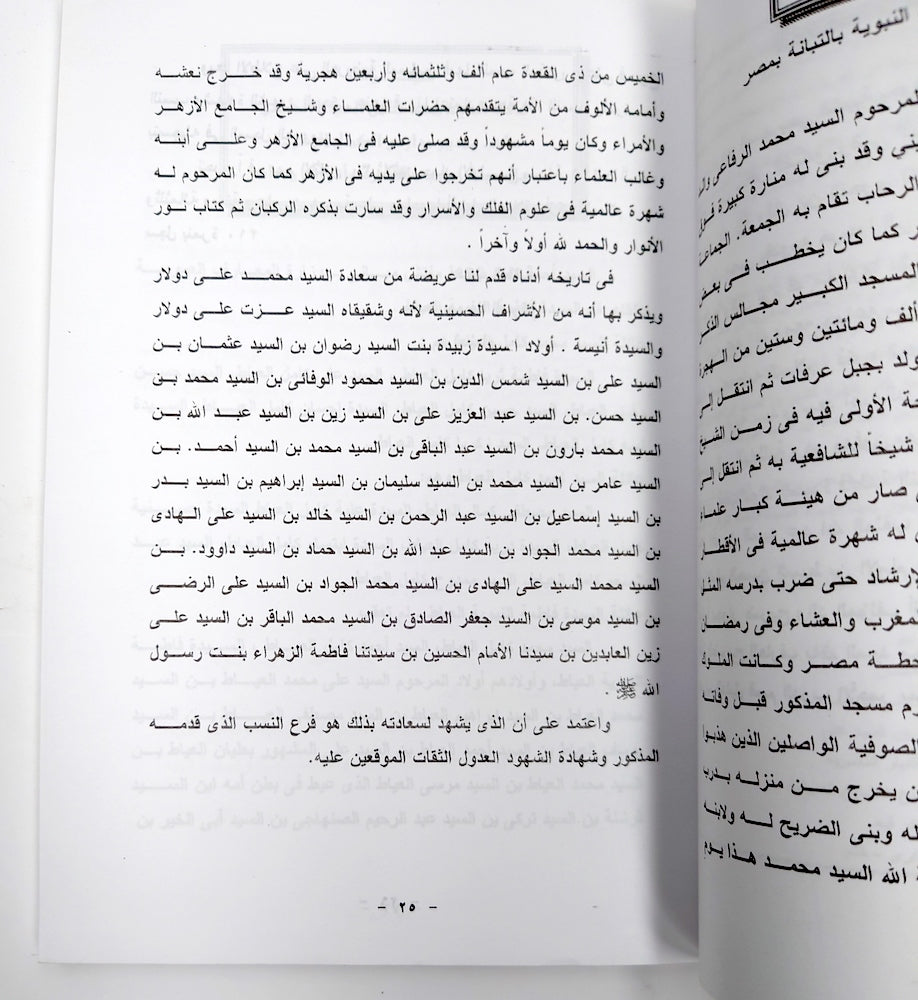 النبوية بالتبانة بمصر
المرحوم السيد محمد الرفاعى
وقد بنى له منارة كبيرة
الرحاب تقام به الجمعة.
كما كان يخطب فى بعض
المسجد الكبير مجالس الذكر
ألف ومائتين وستين من الهجرة
ولد بجبل عرفات ثم انتقل إلى
الأولى فيه فى زمن الشيخ
شيخاً للشافعية به ثم انتقل إلى
صار من هيئة كبار علماء
له شهرة عالمية فى الأقطار
الإرشاد حتى ضرب بدرسه المثل
المغرب والعشاء وفى رمضان
مصر وكانت الملوك
مسجد المذكور قبل وفاته
الصوفية الواصلين الذين هذبوا
يخرج من منزله بدرب
وبنى الضريح له ولابنه
الله السيد محمد هذا يوم
الخميس من ذى القعدة عام ألف وثلثمائه وأربعين هجرية وقد خرج نعشه
وأمامه الألوف من الأمة يتقدمهم حضرات العلماء وشيخ الجامع الأزهر
والأمراء وكان يوماً مشهوداً وقد صلى عليه فى الجامع الأزهر وعلى أبنه
وغالب العلماء باعتبار أنهم تخرجوا على يديه فى الأزهر كما كان المرحوم له
شهرة عالمية فى علوم الفلك والأسرار وقد سارت بذكره الركبان ثم كتاب نور
الأنوار والحمد لله أولاً وآخراً .
فى تاريخه أدناه قدم لنا عريضة من سعادة السيد محمد على دولار
ويذكر بها أنه من الأشراف الحسينية لأنه وشقيقاه السيد عزت على دولار
والسيدة أنيسة . أولاد السيدة زبيدة بنت السيد رضوان بن السيد عثمان بن
السيد على بن السيد شمس الدين بن السيد محمود الوفائى بن السيد محمد بن
السيد حسن. بن السيد عبد العزيز على بن السيد زين بن السيد عبد الله بن
السيد محمد بارون بن السيد عبد الباقى بن السيد محمد بن السيد أحمد. بن
السيد عامر بن السيد محمد بن السيد سليمان بن السيد إبراهيم بن السيد بدر
بن السيد إسماعيل بن السيد عبد الرحمن بن السيد خالد بن السيد على الهادى
بن السيد محمد الجواد بن السيد عبد الله بن السيد حماد بن السيد داوود. بن
السيد محمد السيد على الهادى بن السيد محمد الجواد بن السيد على الرضى
بن السيد موسى بن السيد جعفر الصادق بن السيد محمد الباقر بن السيد على
زين العابدين بن سيدنا الأمام الحسين بن سيدتنا فاطمة الزهراء بنت رسول
الله ﷺ .
واعتمد على أن الذى يشهد لسعادته بذلك هو فرع النسب الذى قدمه
المذكور وشهادة الشهود العدول الثقات الموقعين عليه.
- ٢٥ -